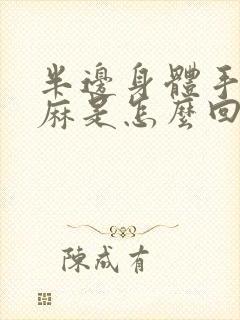 半邊身體手
麻是怎麼回
陳成有